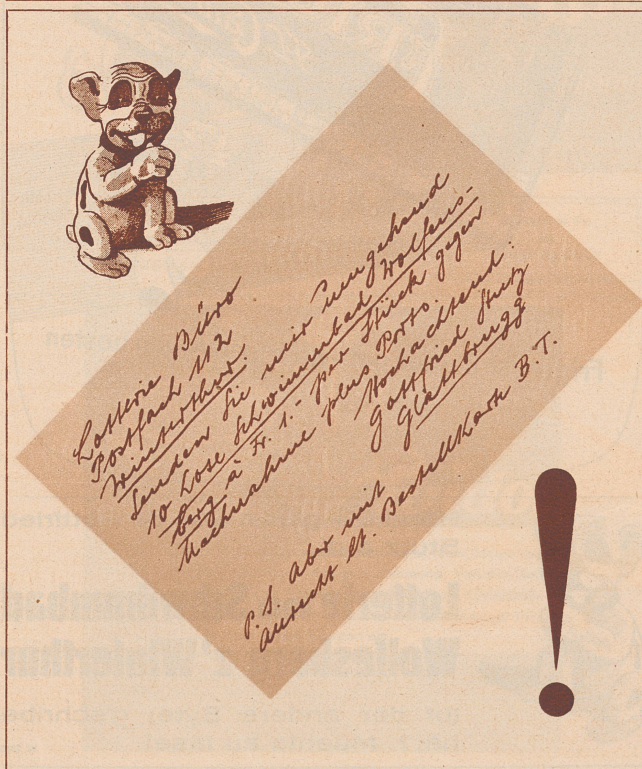 Lotterie Büro
Postfach 112
Winterthur.
Senden Sie mir umgehend
10 Lose Schwimmbad Wolfens-
berg à Fr. 1.- per Stück gegen
Nachnahme plus Porto.
Hochachtend:
Gottfried Stutz
Glattbrugg
P.S. Aber mit
Anrecht lt. Bestellkarte B.T.
!